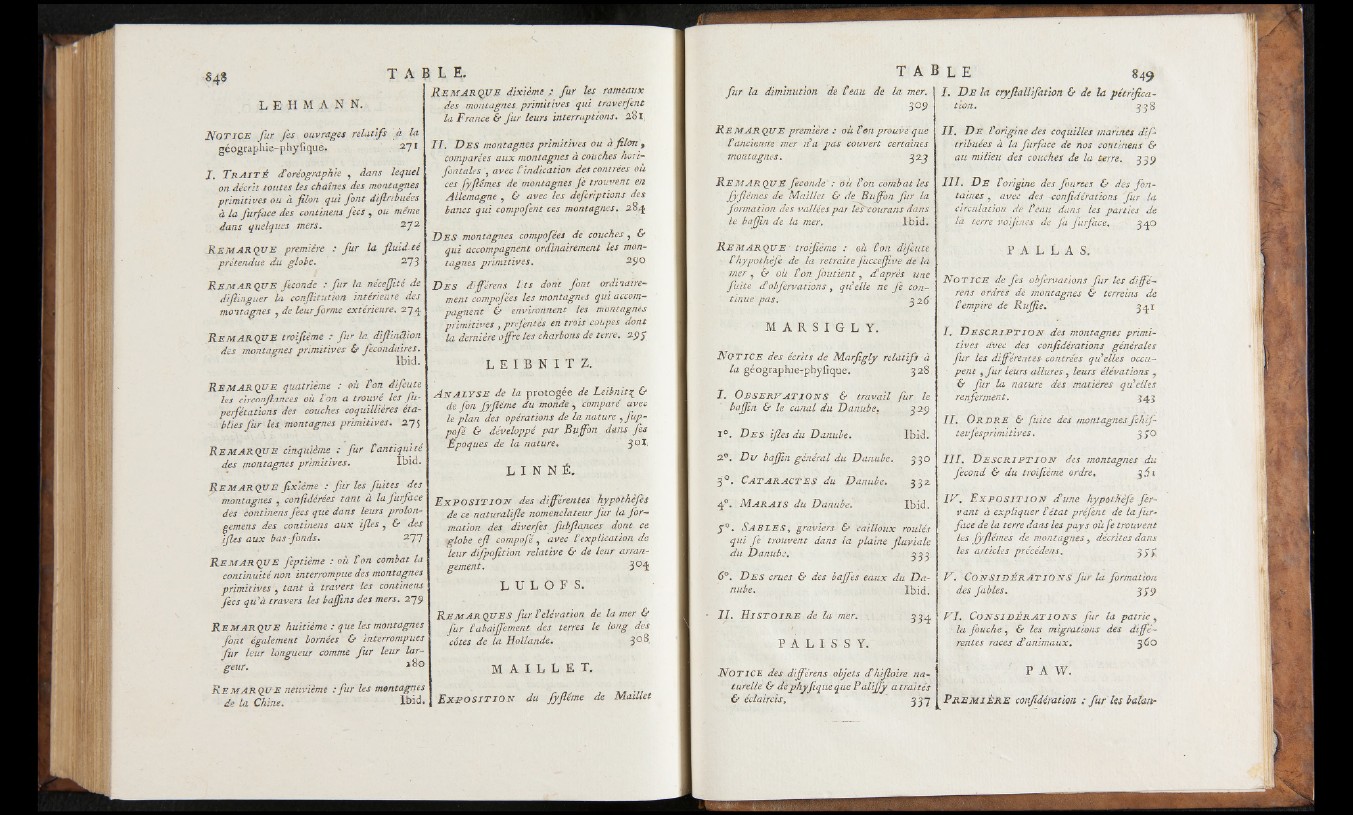 848 TABLE.
LEHMANN.
NOTICE ſur ſes ouvrages relatifs à la
géographie-phyſique. 271
I. TRAITÉ d'oréographie , dans lequel
on décrit toutes les chaînes des montagnes
primitives ou à filon qui ſont diſtribuées
à la ſurface des continens ſecs , ou même
dans quelques mers. 272
REMARQUE première : ſur la fluidité
prétendue du globe. 273
REMARQUE ſeconde : ſur la néceſſité de
diſtinguer la conſtitution intérieure des
montagnes , de leur forme extérieure. 274
REMARQUE troiſième : ſur la diſtinction
des montagnes primitives & ſecondaires.
Ibid.
REMARQUE quatrième : où l'on diſcute
les circonſtances où l'on a trouvé les ſu-
perfétations des couches coquillières éta-
blies ſur les montagnes primitives. 275
REMARQUE cinquième : ſur l'antiquité
des montagnes primitives. Ibid.
REMARQUE ſixième : ſur les ſuites des
montagnes , conſidérées tant à la ſurface
des continens ſecs que dans leurs prolon-
gemens des continens aux iſles , & des
iſles aux bas-fonds. 277
REMARQUE ſeptième : où l'on combat la
continuité non interrompue des montagnes
primitives , tant à travers les continens
ſecs qu'à travers les baſſins des mers. 279
REMARQUE huitième : que les montagnes
ſont également bornées & interrompues
ſur leur longueur comme ſur leur lar-
geur. 280
REMARQUE neuvième : ſur les montagnes
de la Chine. Ibid.
REMARQUE dixième : ſur les rameaux
des montagnes primitives qui traverſent
la France & ſur leurs interruptions. 281
II. DES montagnes primitives ou à filon ,
comparées aux montagnes à couches hori-
ſontales , avec l'indication des contrées où
ces ſyſtêmes de montagnes ſe trouvent en
Allemagne , & avec les deſcriptions des
bancs qui compoſent ces montagnes. 284
DES montagnes compoſées de couches , &
qui accompagnent ordinairement les mon-
tagnes primitives. 290
DES différens lits dont ſont ordinaire-
ment compoſées les montagnes qui accom-
pagnent & environnent les montagnes
primitives , préſentés en trois coupes dont
la dernière offre les charbons de terre. 295
LEIBNITZ.
ANALYSE de la protogée de Leibnitz &
de ſon ſyſtême du monde , comparé avec
le plan des opérations de la nature , ſup-
poſé & développé par Buffon dans ſes
Epoques de la nature. 301
LINNÉ.
EXPOSITION des différentes hypothèſes
de ce naturaliſte nomenclateur ſur la for-
mation des diverſes ſubſtances dont ce
globe eſt compoſé , avec l'explication de
leur diſpoſition relative & de leur arran-
gement. 304
LULOFS.
REMARQUES ſur l'élévation de la mer &
ſur l'abaiſſement des terres le long des
côtes de la Hollande. 308
MAILLET.
EXPOSITION du ſyſtême de Maillet
TABLE 849
ſur la diminution de l'eau de la mer.
309
REMARQUE première : où l'on prouve que
l'ancienne mer n'a pas couvert certaines
montagnes. 323
REMARQUE ſeconde : où l'on combat les
ſyſtêmes de Maillet & de Buffon ſur la
formation des vallées par les courans dans
le baſſin de la mer. Ibid.
REMARQUE troiſième : où l'on diſcute
l'hypothèſe de la retraite ſucceſſive de la
mer , & où l'on ſoutient , d'après une
ſuite d'obſervations , qu'elle ne ſe con-
tinue pas. 326
MARSIGLY.
NOTICE des écrits de Marſigly relatifs à
la géographie-phyſique. 328
I. OBSERVATIONS & travail ſur le
baſſin & le canal du Danube. 329
1°. DES iſles du Danube. Ibid.
2°. DU baſſin général du Danube. 330
3°. CATARACTES du Danube. 332
4°. MARAIS du Danube. Ibid.
5°. SABLES, graviers & cailloux roulés
qui ſe trouvent dans la plaine fluviale
du Danube. 333
6°. DES crues & des baſſes eaux du Da-
nube. Ibid.
II. HISTOIRE de la mer. 334
PALISSY.
NOTICE des différens objets d'hiſtoire na-
turelle & de phyſique que Paliſſy a traités
& éclaircis. 337
I. DE la cryſtalliſation & de la pétrifica-
tion. 338
II. DE l'origine des coquilles marines diſ-
tribuées à la ſurface de nos continens &
au milieu des couches de la terre. 339
III. DE l'origine des ſources & des fon-
taines , avec des conſidérations ſur la
circulation de l'eau dans les parties de
la terre voiſines de ſa ſurface. 340
PALLAS.
NOTICE de ſes obſervations ſur les diffé-
rens ordres de montagnes & terreins de
l'empire de Ruſſie. 341
I. DESCRIPTION des montagnes primi-
tives avec des conſidérations générales
ſur les différentes contrées qu'elles occu-
pent , ſur leurs allures , leurs élévations ,
& ſur la nature des matières qu'elles
renferment. 343
II. ORDRE & ſuite des montagnes ſchiſ-
teuſes primitives. 350
III. DESCRIPTION des montagnes du
ſecond & du troiſième ordre. 351
IV. EXPOSITION d'une hypothèſe ſer-
vant à expliquer l'état préſent de la ſur-
face de la terre dans les pays où ſe trouvent
les ſyſtêmes de montagnes , décrites dans
les articles précédens. 355
V. CONSIDÉRATIONS ſur la formation
des ſables. 359
VI. CONSIDÉRATIONS ſur la patrie ,
la ſouche , & les migrations des diffé-
rentes races d'animaux. 360
PAW.
PREMIÈRE conſidération : ſur les balan-